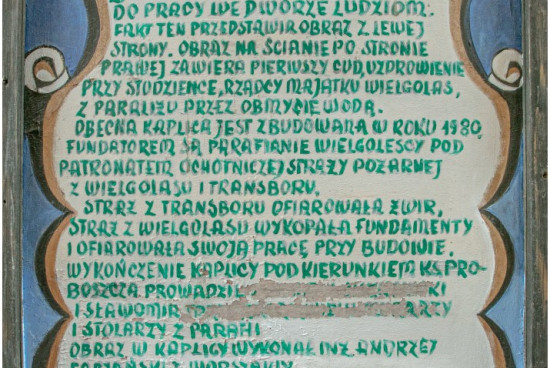 DO PRACY WE DWORZE LUDZIOM.
FAKT TEN PRZEDSTAWIA OBRAZ Z LEWEJ
STRONY. OBRAZ NA ŚCIANIE PO STRONIE
PRAWEJ ZAWIERA PIERWSZY CUD, UZDROWIENIE
PRZY STUDZIENCE, RZĄDCY MAJATKU WIELGOLAS,
Z PARALIŻU PRZEZ OBMYCIE WODĄ.
OBECNA KAPLICA JEST ZBUDOWANA W ROKU 1980,
FUNDATOREM SĄ PARAFIANIE WIELGOLESCY POD
PATRONATEM OCHOTNICZEJ STRAŻY POŻARNEJ
Z WIELGOLASU I TRANSBORU,
STRAŻ Z TRANSBORU OFIAROWAŁA ŻWIR,
STRAŻ Z WIELGOLASU WYKOPAŁA FUNDAMENTY
I OFIAROWAŁA SWOJĄ PRACĘ PRZY BUDOWIE.
WYKOŃCZENIE KAPLICY POD KIERUNKIEM KS. PRO-
BOSZCZA PROWADZIŁ KI
I SŁAWOMIR ARZY
I STOLARZY Z PARAFI
OBRAZ W KAPLICY WYKONAŁ INŻ. ANDRZEJ